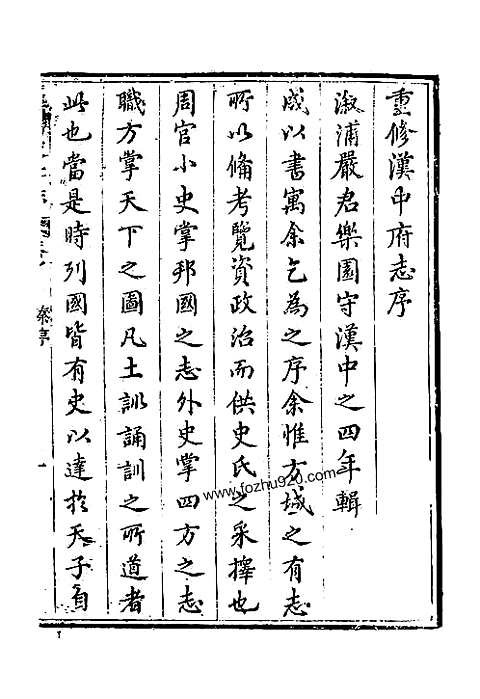 重修漢中府志序
漵浦嚴君樂園守漢中之四年輯
成以書寓余乞為之序余惟方域之有志
所以備考覽資政治而供史氏之采擇也
周官小史掌邦國之志外史掌四方之志
職方掌天下之圖凡土訓誦訓之所道者
此也當是時列國皆有史以達於天子自
秦序
一
www.fozhu920.com